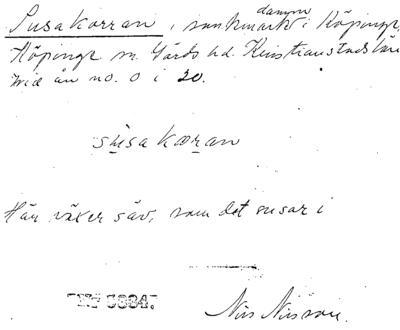 Susakärran, sankmark i Köpinge,
damm
Köpinge sn. Gärds hd. Kristianstads län
Vid ån no. 0 i 20.
susa kæran
Här växer säv, som det susar i
Nils Nilsson.